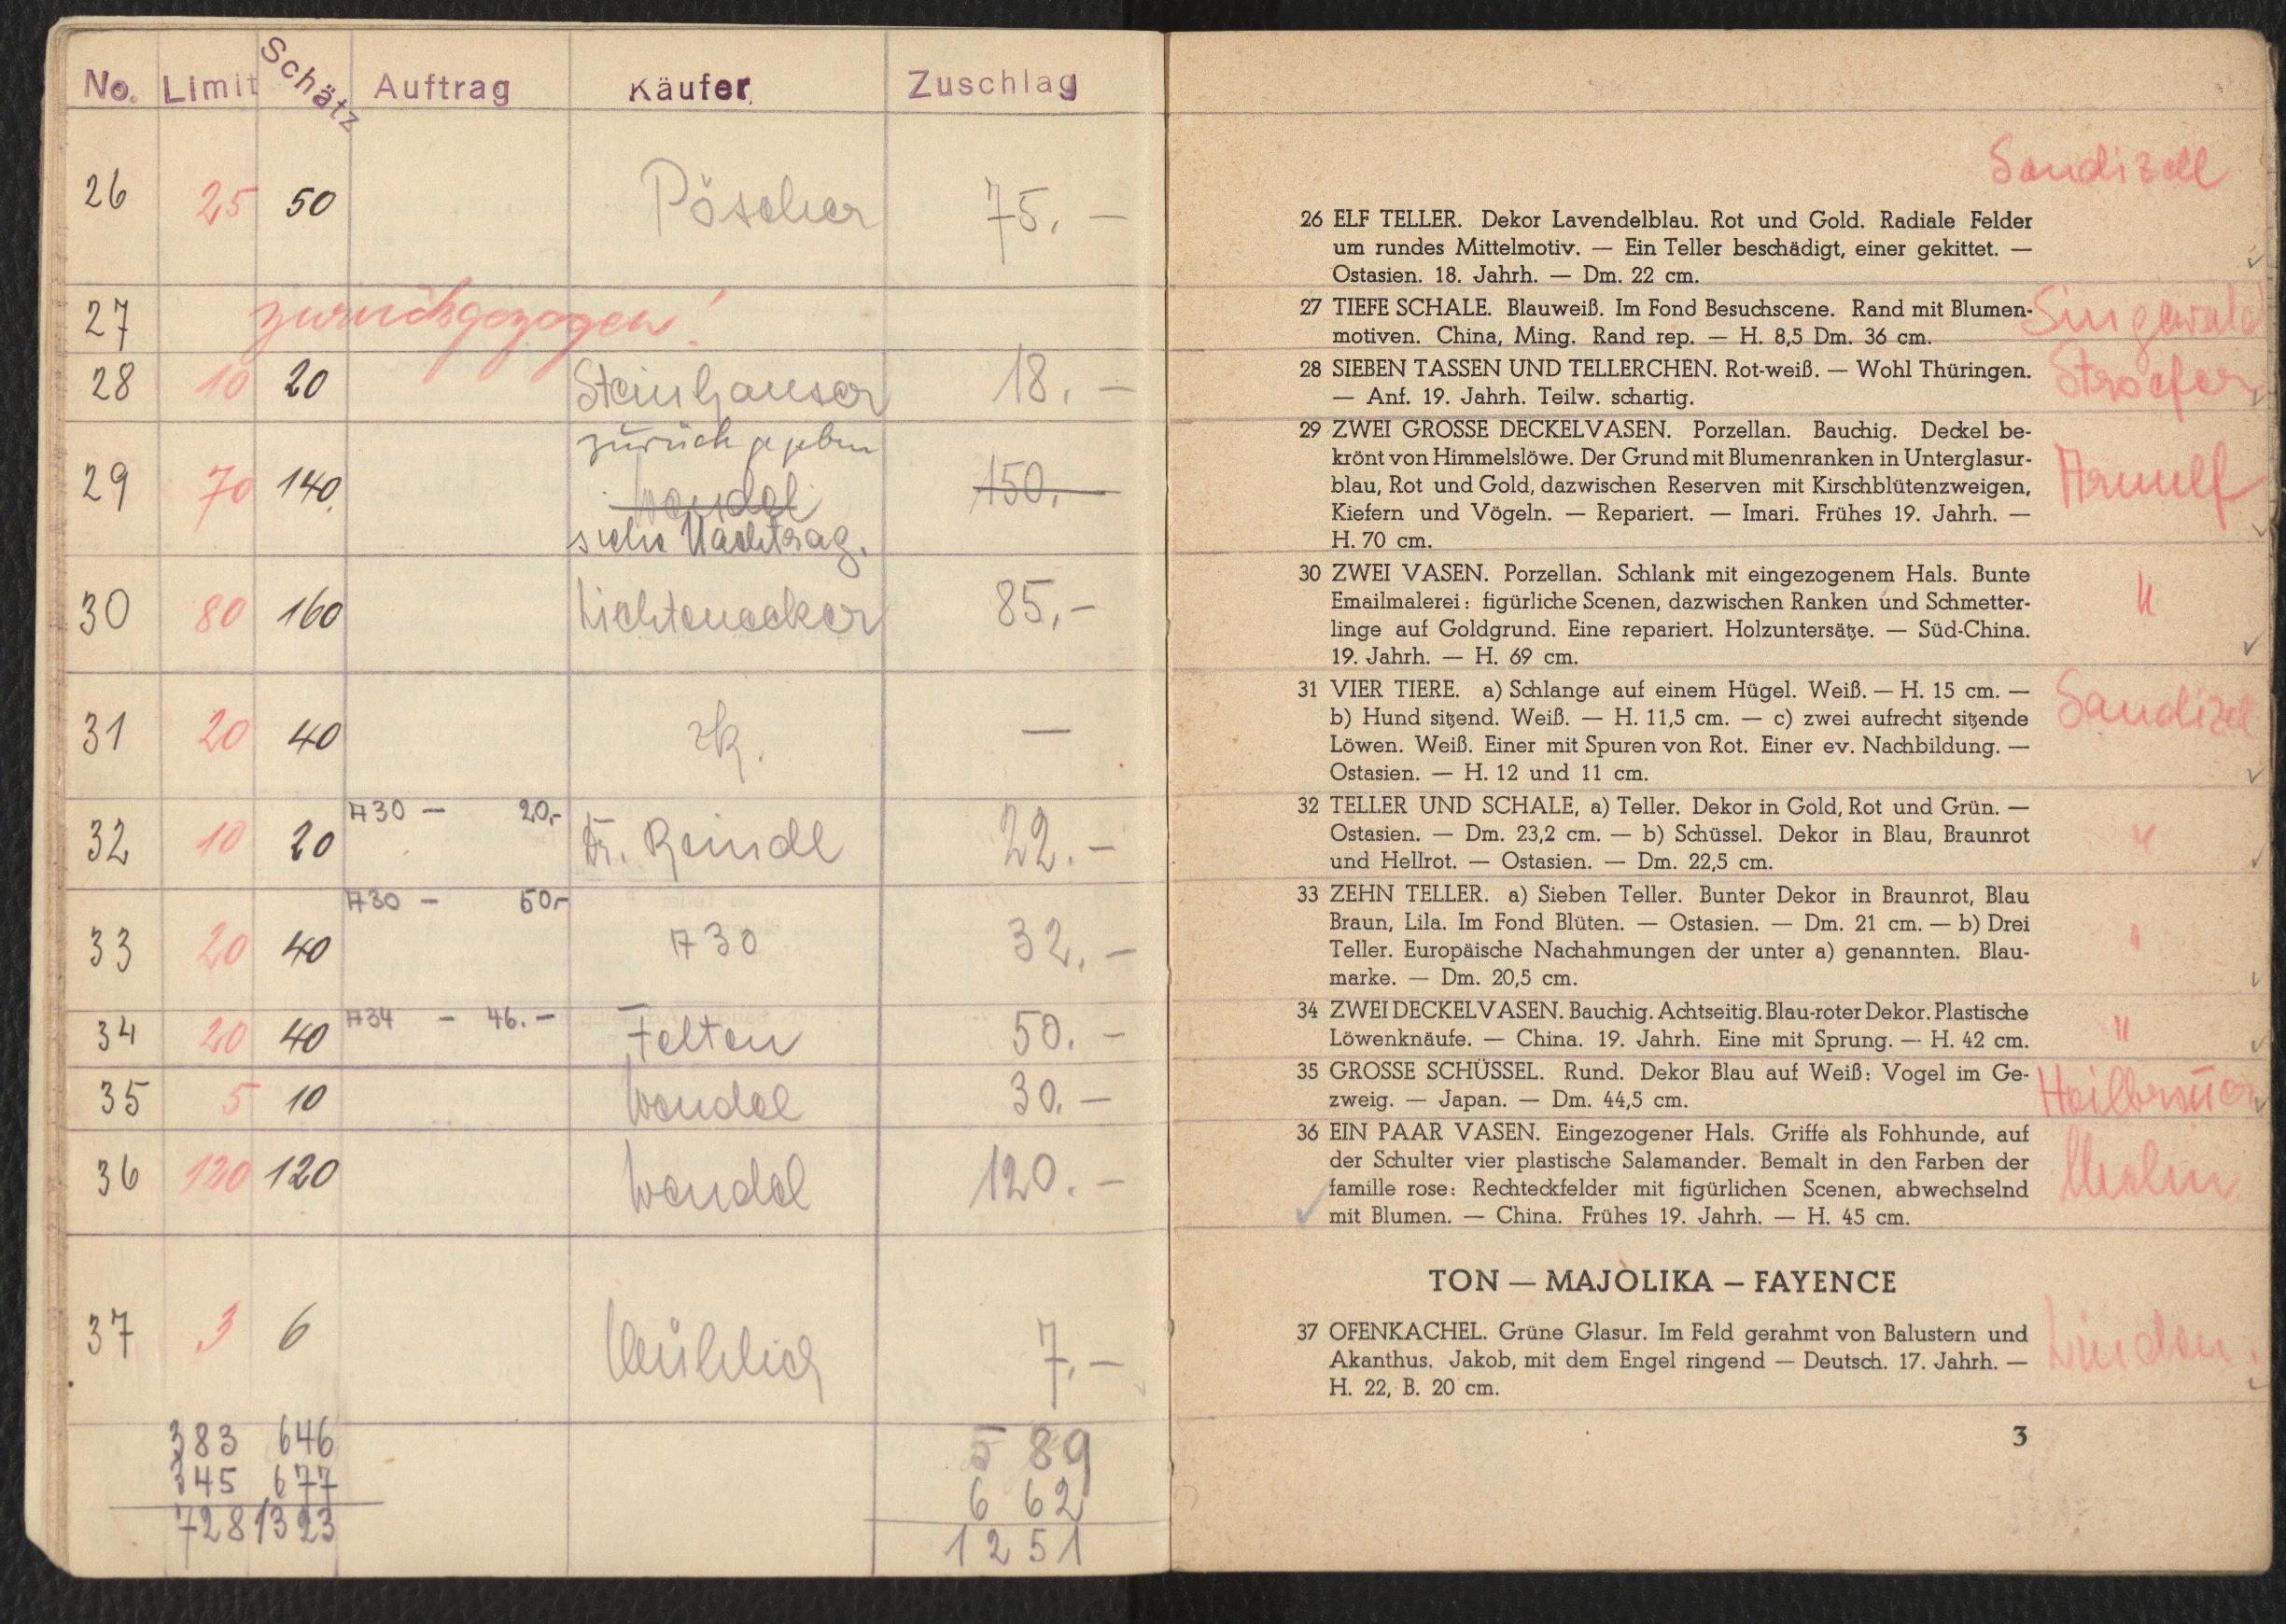 No. Limit Schätz Auftrag Käufer Zuschlag
26 25 50 Pöscher 75.–
27 zurückgezogen!
28 10 20 Steinhauser 18.–
zurückgegeben
29 70 140. Wendel 150.–
siehe Nachtrag.
30 80 160 Lichtenecker 85,–
31 20 40 zk. —
A30 – 20,-
32 10 20 Dr. Reindl 22.–
A30 – 50,-
33 20 40 A30 32.–
A34 – 46.–
34 20 40 Felten 50.–
35 5 10 Wendel 30.–
36 120 120 Wendel 120.–
37 3 6 7.–
383 646 589
345 677 662
728 1323 1251
Sandizell
26 ELF TELLER. Dekor Lavendelblau. Rot und Gold. Radiale Felder
um rundes Mittelmotiv. — Ein Teller beschädigt, einer gekittet. —
Ostasien. 18. Jahrh. — Dm. 22 cm.
27 TIEFE SCHALE. Blauweiß. Im Fond Besuchscene. Rand mit Blumen- Singewald
motiven. China, Ming. Rand rep. — H. 8,5 Dm. 36 cm.
28 SIEBEN TASSEN UND TELLERCHEN. Rot-weiß. — Wohl Thüringen. Stroefer
— Anf. 19. Jahrh. Teilw. schartig.
29 ZWEI GROSSE DECKELVASEN. Porzellan. Bauchig. Deckel be-
krönt von Himmelslöwe. Der Grund mit Blumenranken in Unterglasur-
blau, Rot und Gold, dazwischen Reserven mit Kirschblütenzweigen, Arnulf
Kiefern und Vögeln. — Repariert. — Imari. Frühes 19. Jahrh. —
H. 70 cm.
30 ZWEI VASEN. Porzellan. Schlank mit eingezogenem Hals. Bunte
Emailmalerei: figürliche Scenen, dazwischen Ranken und Schmetter- "
linge auf Goldgrund. Eine repariert. Holzuntersätze. — Süd-China.
19. Jahrh. — H. 69 cm.
31 VIER TIERE. a) Schlange auf einem Hügel. Weiß. — H. 15 cm. — Sandizell
b) Hund sitzend. Weiß. — H. 11,5 cm. — c) zwei aufrecht sitzende
Löwen. Weiß. Einer mit Spuren von Rot. Einer ev. Nachbildung. —
Ostasien. — H. 12 und 11 cm.
32 TELLER UND SCHALE, a) Teller. Dekor in Gold, Rot und Grün. —
Ostasien. — Dm. 23,2 cm. — b) Schüssel. Dekor in Blau, Braunrot "
und Hellrot. — Ostasien. — Dm. 22,5 cm.
33 ZEHN TELLER. a) Sieben Teller. Bunter Dekor in Braunrot, Blau
Braun, Lila. Im Fond Blüten. — Ostasien. — Dm. 21 cm. — b) Drei "
Teller. Europäische Nachahmungen der unter a) genannten. Blau-
marke. — Dm. 20,5 cm.
34 ZWEI DECKELVASEN. Bauchig. Achtseitig. Blau-roter Dekor. Plastische "
Löwenknäufe. — China. 19. Jahrh. Eine mit Sprung. — H. 42 cm.
35 GROSSE SCHÜSSEL. Rund. Dekor Blau auf Weiß: Vogel im Ge- Heilbronner
zweig. — Japan. — Dm. 44,5 cm.
36 EIN PAAR VASEN. Eingezogener Hals. Griffe als Fohhunde, auf
der Schulter vier plastische Salamander. Bemalt in den Farben der
famille rose: Rechteckfelder mit figürlichen Scenen, abwechselnd
mit Blumen. — China. Frühes 19. Jahrh. — H. 45 cm.
TON — MAJOLIKA — FAYENCE
37 OFENKACHEL. Grüne Glasur. Im Feld gerahmt von Balustern und Linden.
Akanthus. Jakob, mit dem Engel ringend — Deutsch. 17. Jahrh. —
H. 22, B. 20 cm.
3